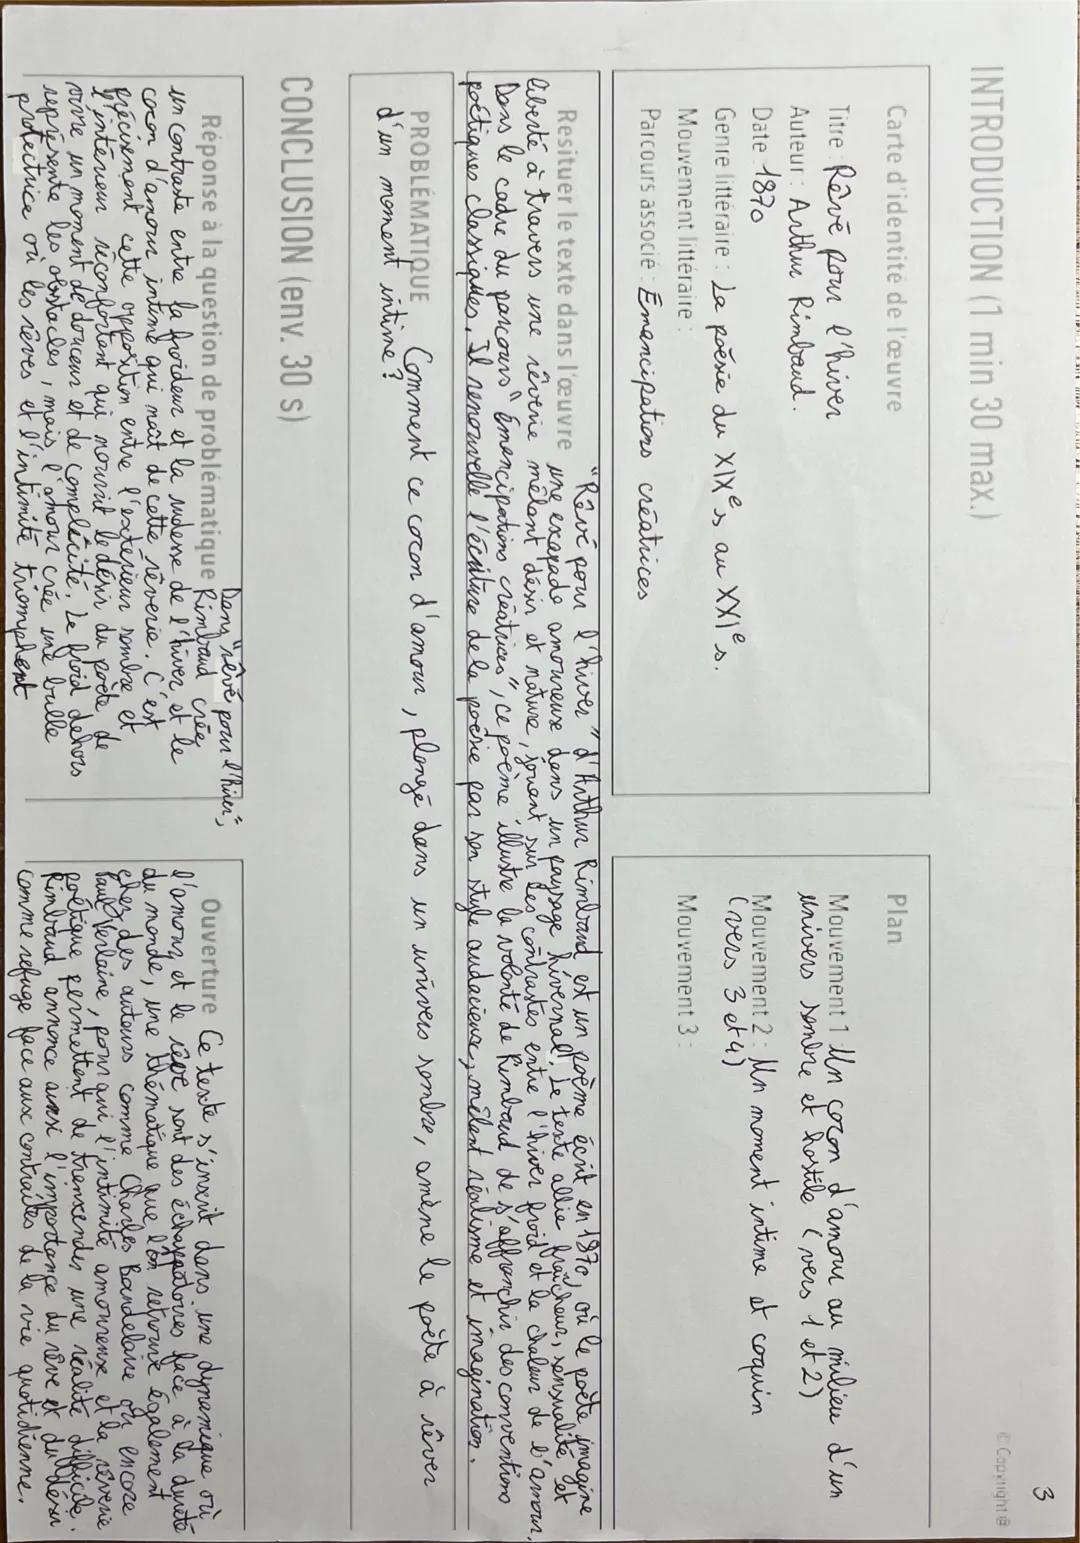 3
© Copyright @
INTRODUCTION (1 min 30 max.)
Carte d'identité de l'œuvre
Titre : Rêvé pour l'hiver
Auteur : Arthur Rimbaud.
Date : 1870
Genre littéraire : La poésie du XIXe s au XXIe s.
Mouvement littéraire :
Parcours associé : Emancipations créatrices
Plan
Mouvement 1 : Un cocon d'amour au milieu d'un
univers sombre et hostile (vers 1 et 2)
Mouvement 2 : Un moment intime et coquin
(vers 3 et 4)
Mouvement 3 :
Resituer le texte dans l'œuvre "Rêvé pour l'hiver" d'Arthur Rimbaud est un poème écrit en 1870, où le poète imagine
une exapade amoureuse dans un paysage hivernal. Le texte allie fraîcheur, sensualité et
liberté à travers une rêverie mêlant désir et nature, jouant sur les contrastes entre l'hiver froid et la chaleur de l'amour.
Dans le cadre du parcours "Emancipations créatrices", ce poème illustre la volonté de Rimbaud de s'affranchir des conventions
poétiques classiques. Il renouvelle l'écriture de la poésie par son style audacieux, mêlant réalisme et imagination.
PROBLÉMATIQUE Comment ce cocon d'amour, plongé dans un univers sombre, amène le poète à rêver
d'un moment intime ?
CONCLUSION (env. 30 s)
Réponse à la question de problématique Dans "rêvé pour l'hiver",
Rimbaud crée
un contraste entre la froideur et la rudesse de l'hiver et le
cocon d'amour intime qui naît de cette rêverie. C'est
précisément cette opposition entre l'exterieur sombre et
l'intérieur réconfortant qui nourrit le désir du poète de
vivre un moment de douceur et de complicité. Le froid dehors
représente les obstacles, mais l'amour crée une bulle
protectrice où les rêves et l'intimité triomphent
Ouverture Ce texte s'inscrit dans une dynamique où
l'amour et le rêve sont des échappatoires face à la dureté
du monde, une thématique que l'on retrouve également
chez des auteurs comme Charles Baudelaire ou encore
Paul Verlaine, pour qui l'intimité amoureuse et la rêverie
poétique permettent de transcender une réalité difficile.
Rimbaud annonce aussi l'importance du rêve et du désir
comme refuge face aux contraites de la vie quotidienne.